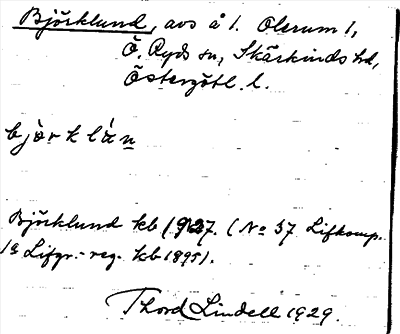 Björklund, avs å 1. Olsrum 1,
Ö. Ryds sn, Skärkinds hd,
Östergötl. l.
björklân
Björklund kb 1927. (No 37 Lifkomp.
1a Lifgr.-reg. kb 1895).
Thord Lindell 1929.